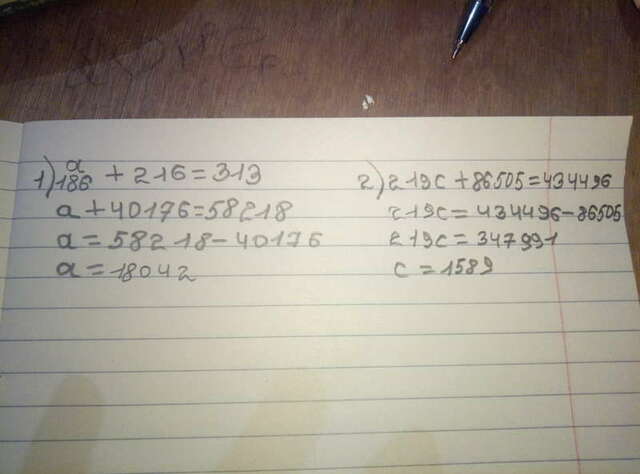 1) a/186 + 216 = 313
a + 40176 = 58218
a = 58218 - 40176
a = 18042
2) 219c + 86505 = 434496
219c = 434496 - 86505
219c = 347991
c = 1589